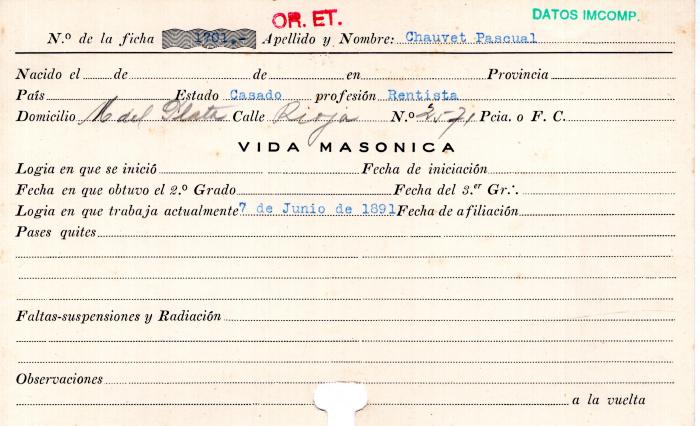 OR. ET.
DATOS IMCOMP.
N.º de la ficha 1701.- Apellido y Nombre: Chauvet Pascual
Nacido el de de en Provincia
País Estado Casado profesión Rentista
Domicilio M del Plata Calle Rioja N.º 2571 Pcia. o F. C.
VIDA MASONICA
Logia en que se inició Fecha de iniciación
Fecha en que obtuvo el 2.º Grado Fecha del 3.er Gr∴
Logia en que trabaja actualmente 7 de Junio de 1891 Fecha de afiliación
Pases quites
Faltas-suspensiones y Radiación
Observaciones
a la vuelta